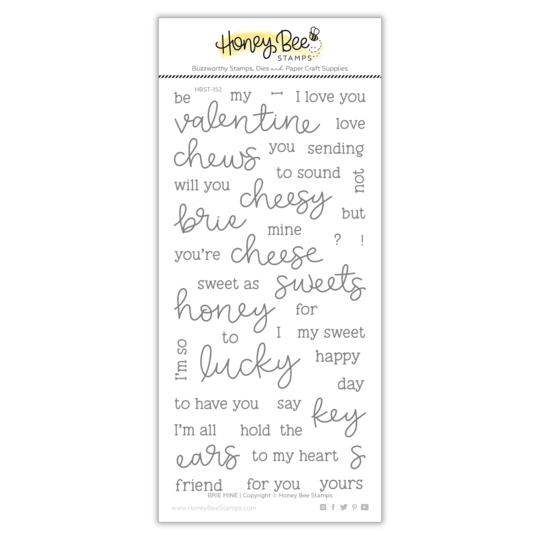 Honey Bee
STAMPS
Buzzworthy Stamps, Dies and Paper Craft Supplies
HBST-152
be my I I love you
valentine love
chews you sending
to sound not
will you cheesy
brie but
mine ? !
you're cheese
sweet as sweets
honey for
to I my sweet
I'm so lucky happy
day
to have you say key
I'm all hold the
ears to my heart s
friend for you yours
BRIE MINE | Copyright © Honey Bee Stamps
www.HoneyBeeStamps.com